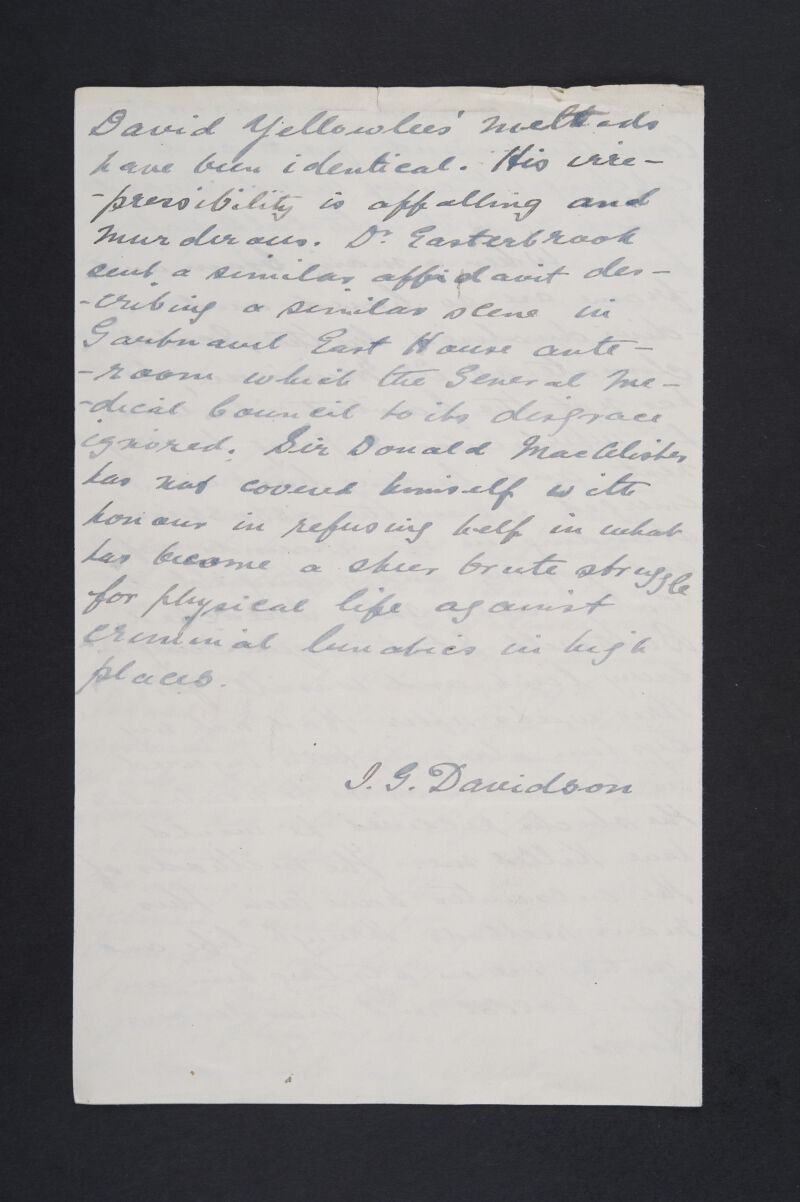 David Yellowlees' methods
have been identical. His irre-
-pressibility is appalling and
murderous. Dr Easterbrook
sent a similar affidavit des-
-cribing a similar scene in
Gartnavel East House ante-
-room which the General Me-
-dical Council to its disgrace
ignored. Sir Donald MacAlister
has not covered himself with
honour in refusing help in what
has become a sheer brute struggle
for physical life against
criminal lunatics in high
places.
J. G. Davidson